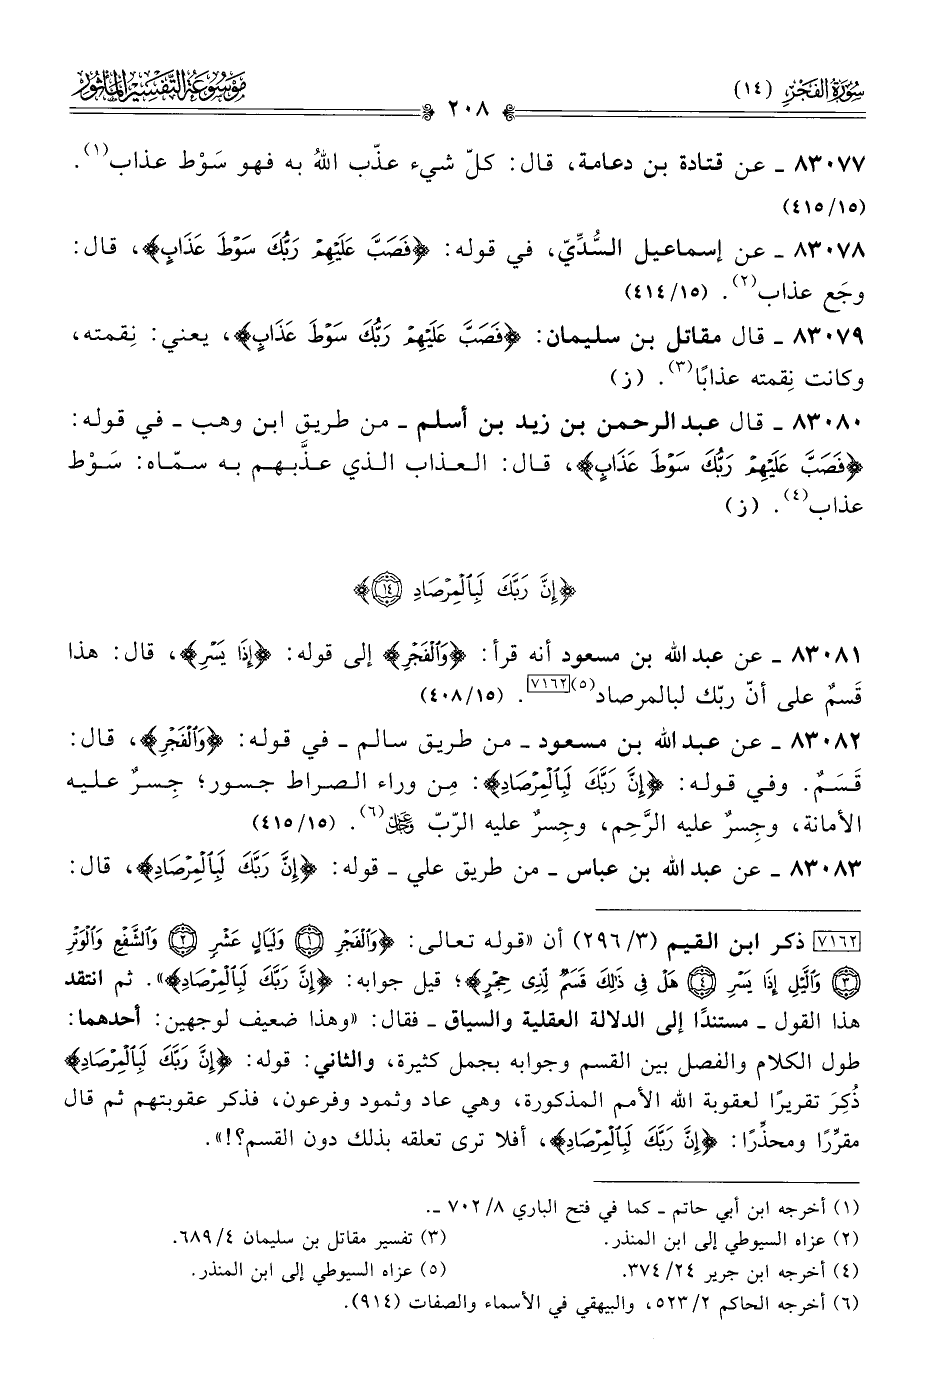 سُورَةُ الفَجْرِ (١٤)
٢٠٨
مَوْسُوعَةُ التَّفْسِيرِ المَأْثُور
٨٣٠٧٧ ـ عن قتادة بن دعامة، قال: كلّ شيء عذّب اللهُ به فهو سَوْط عذاب(١).
(٤١٥/١٥)
٨٣٠٧٨ ـ عن إسماعيل السُّدِّيّ، في قوله: ﴿فَصَبَّ عَلَيْهِمْ رَبُّكَ سَوْطَ عَذَابٍ﴾، قال:
وجَع عذاب(٢). (٤١٤/١٥)
٨٣٠٧٩ ـ قال مقاتل بن سليمان: ﴿فَصَبَّ عَلَيْهِمْ رَبُّكَ سَوْطَ عَذَابٍ﴾، يعني: نِقمته،
وكانت نِقمته عذابًا(٣). (ز)
٨٣٠٨٠ ـ قال عبد الرحمن بن زيد بن أسلم ـ من طريق ابن وهب ـ في قوله:
﴿فَصَبَّ عَلَيْهِمْ رَبُّكَ سَوْطَ عَذَابٍ﴾، قال: العذاب الذي عذَّبهم به سمّاه: سَوْط
عذاب(٤). (ز)
﴿إِنَّ رَبَّكَ لَبِٱلْمِرْصَادِ ١٤﴾
٨٣٠٨١ ـ عن عبد الله بن مسعود أنه قرأ: ﴿وَٱلْفَجْرِ﴾ إلى قوله: ﴿إِذَا يَسْرِ﴾، قال: هذا
قَسمٌ على أنّ ربّك لبالمرصاد(٥)[٧١٦٢]. (٤٠٨/١٥)
٨٣٠٨٢ ـ عن عبد الله بن مسعود ـ من طريق سالم ـ في قوله: ﴿وَٱلْفَجْرِ﴾، قال:
قَسَمٌ. وفي قوله: ﴿إِنَّ رَبَّكَ لَبِٱلْمِرْصَادِ﴾: مِن وراء الصراط جسور؛ جِسرٌ عليه
الأمانة، وجِسرٌ عليه الرَّحِم، وجِسرٌ عليه الرّبّ ﷿(٦). (٤١٥/١٥)
٨٣٠٨٣ ـ عن عبد الله بن عباس ـ من طريق علي ـ قوله: ﴿إِنَّ رَبَّكَ لَبِٱلْمِرْصَادِ﴾، قال:
[٧١٦٢] ذكر ابن القيم (٢٩٦/٣) أن «قوله تعالى: ﴿وَٱلْفَجْرِ ١ وَلَيَالٍ عَشْرٍ ٢ وَٱلشَّفْعِ وَٱلْوَتْرِ
٣ وَٱلَّيْلِ إِذَا يَسْرِ ٤ هَلْ فِى ذَٰلِكَ قَسَمٌ لِّذِى حِجْرٍ﴾؛ قيل جوابه: ﴿إِنَّ رَبَّكَ لَبِٱلْمِرْصَادِ﴾». ثم انتقد
هذا القول ـ مستندًا إلى الدلالة العقلية والسياق ـ فقال: «وهذا ضعيف لوجهين: أحدهما:
طول الكلام والفصل بين القسم وجوابه بجمل كثيرة، والثاني: قوله: ﴿إِنَّ رَبَّكَ لَبِٱلْمِرْصَادِ﴾
ذُكِرَ تقريرًا لعقوبة الله الأمم المذكورة، وهي عاد وثمود وفرعون، فذكر عقوبتهم ثم قال
مقرِّرًا ومحذِّرًا: ﴿إِنَّ رَبَّكَ لَبِٱلْمِرْصَادِ﴾، أفلا ترى تعلقه بذلك دون القسم؟!».
(١) أخرجه ابن أبي حاتم ـ كما في فتح الباري ٧٠٢/٨ ـ.
(٢) عزاه السيوطي إلى ابن المنذر. (٣) تفسير مقاتل بن سليمان ٦٨٩/٤.
(٤) أخرجه ابن جرير ٣٧٤/٢٤. (٥) عزاه السيوطي إلى ابن المنذر.
(٦) أخرجه الحاكم ٥٢٣/٢، والبيهقي في الأسماء والصفات (٩١٤).